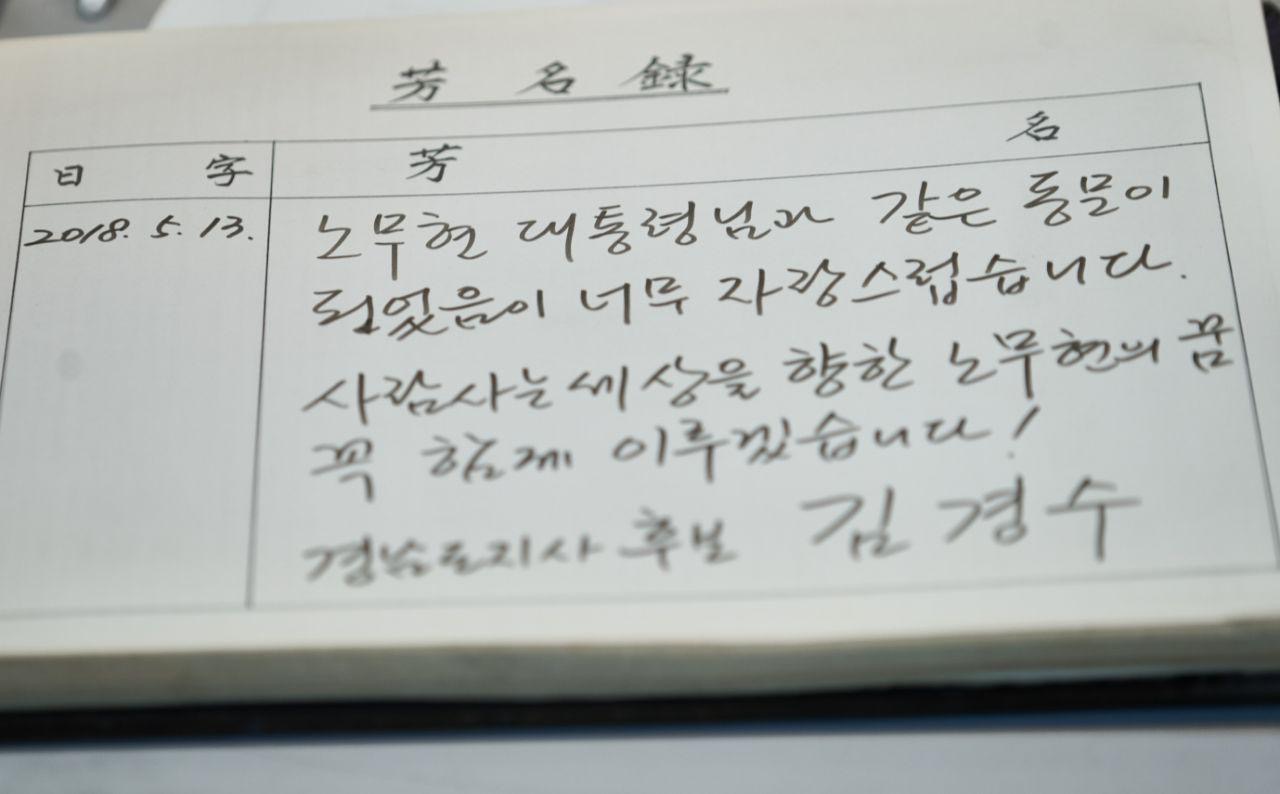 芳名録
日字 芳名
2018. 5. 13. 노무현 대통령님과 같은 동문이
되었음이 너무 자랑스럽습니다.
사람사는 세상을 향한 노무현의 꿈
꼭 함께 이루겠습니다!
경남도지사 후보 김경수